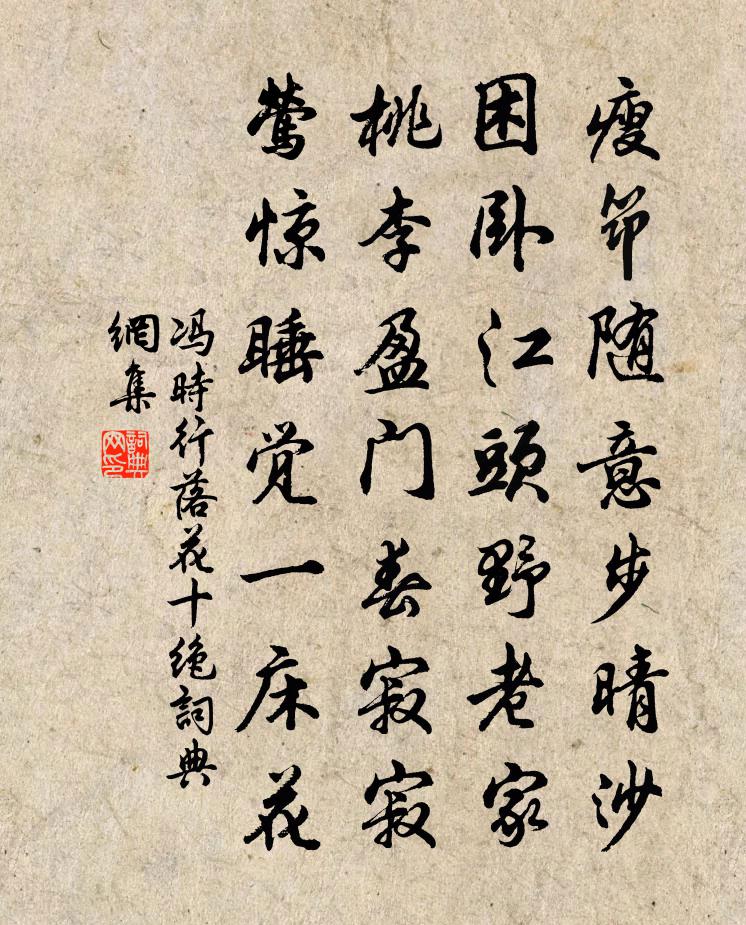 瘦筇随意步晴沙
困卧江頭野老家
桃李盈门春寂寂
莺惊睡觉一床花
冯時行落花十绝詞典
網集
詞典
网印